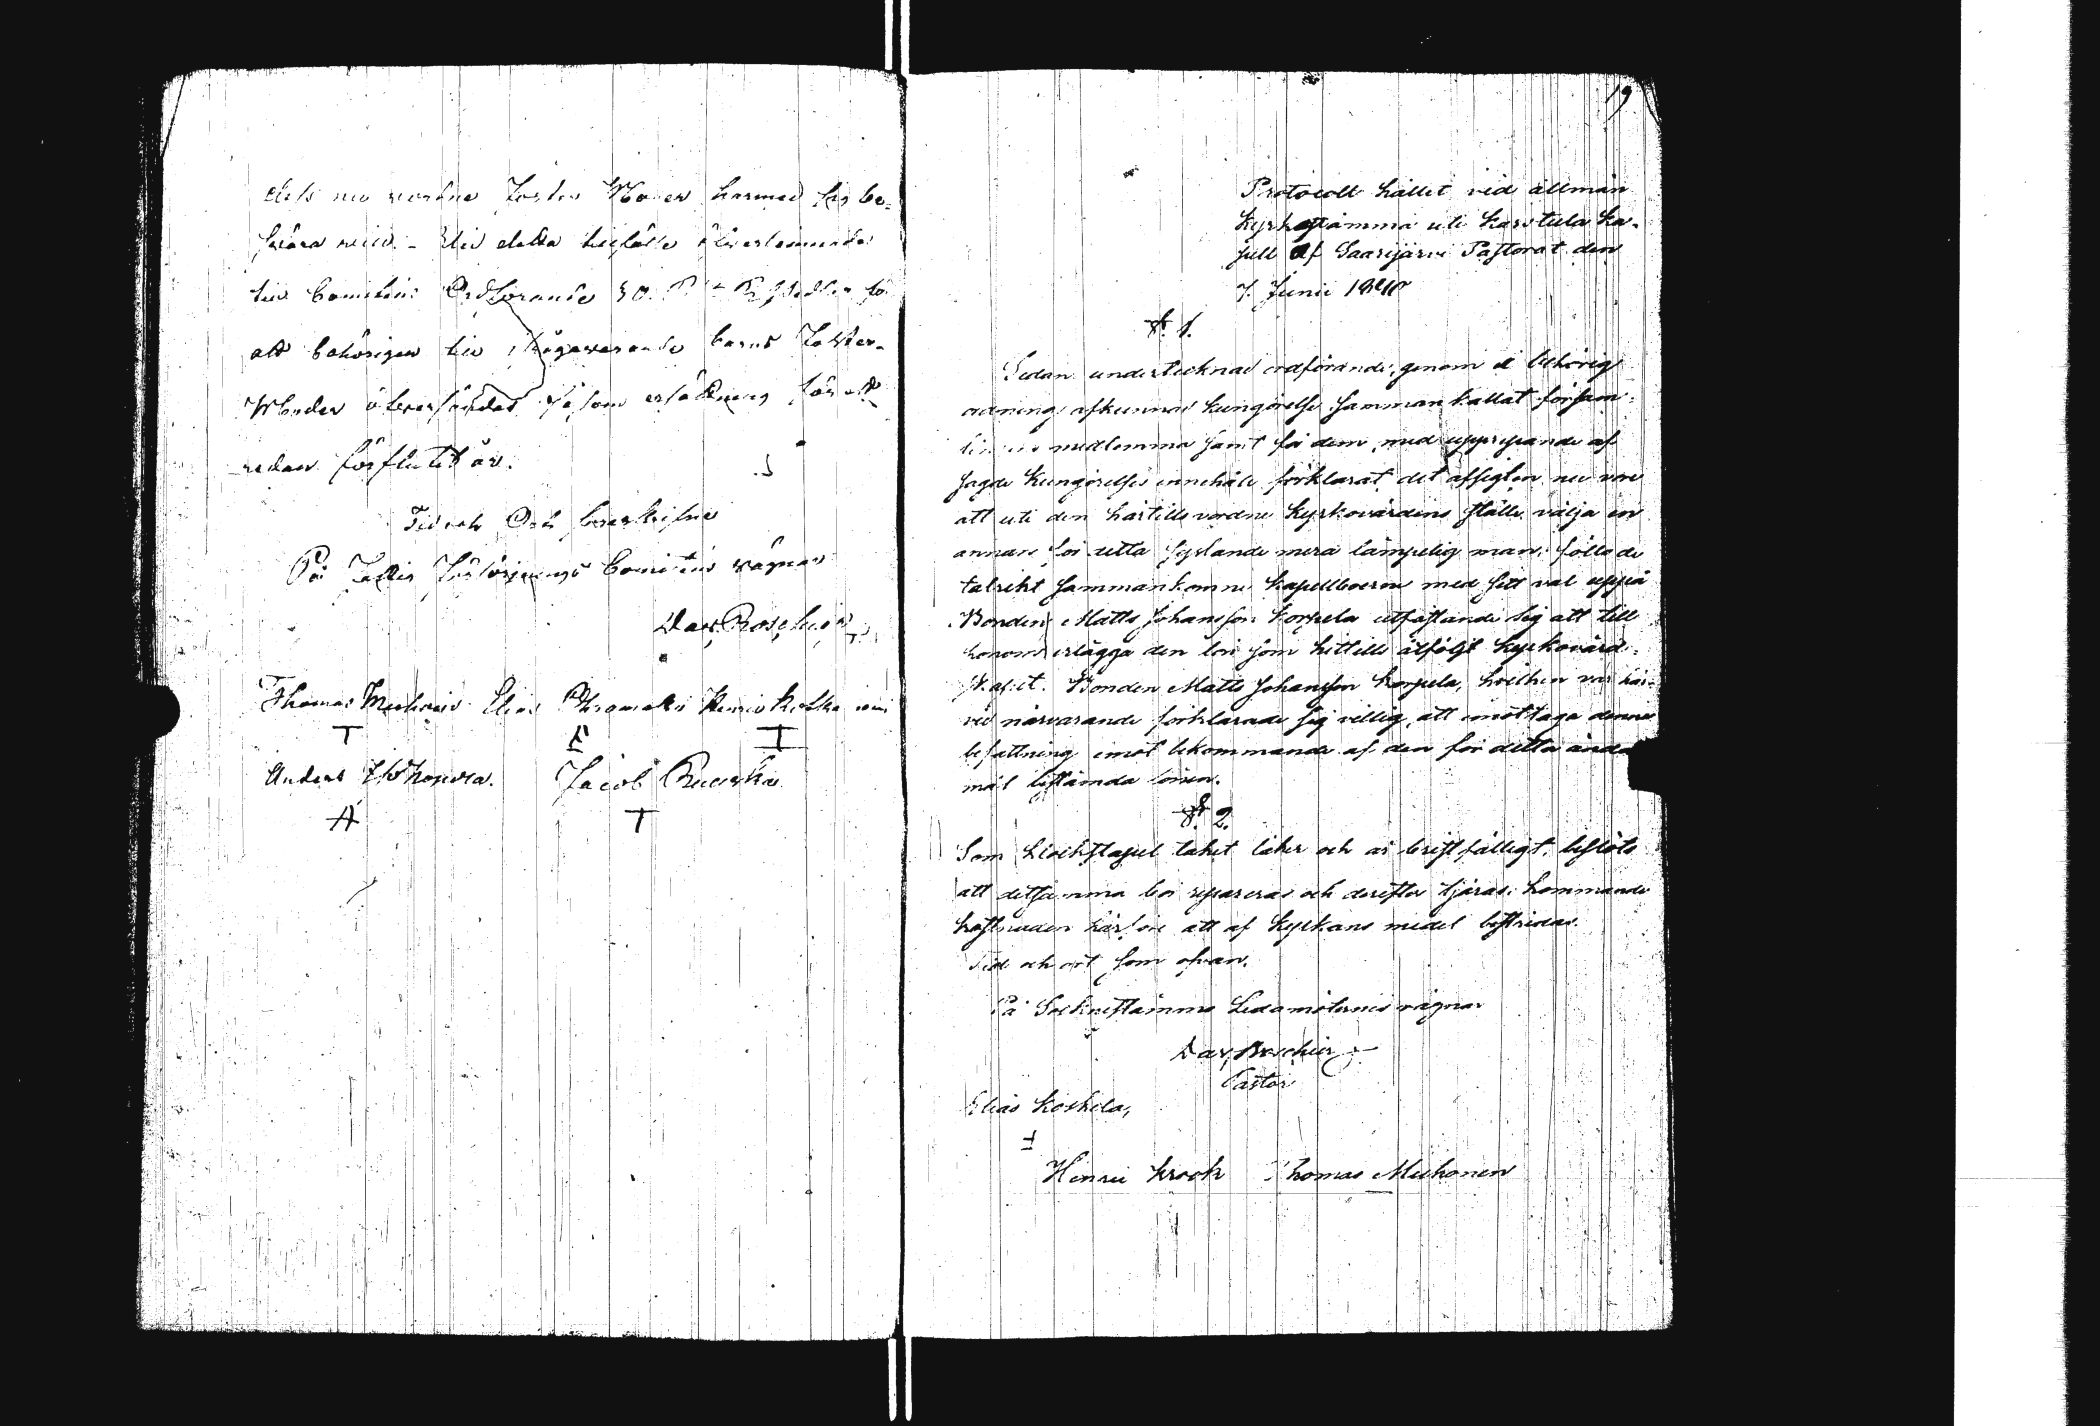 dels nu vordne Foster Moder harmed sig be-
svara
till Comitens Ordförande 30 för
att behörigen till barns Foster-
Moder öfversändas såsom ersättning för ett
redan förflutit år.
Tid och Ort
På Fattig Försörjnings Comitens vägnar
Dav. Roschier
Thomas Muhonen Elias Henric
T E I
Anders Jacob
A T
19
Protocoll hållet vid allmän
Kyrkostämma uti Karstula Ka-
pell af Saarijärvi Pastorat den
7. Junii 1840
§. 1.
Sedan undertecknad ordförande, genom i behörig
ordning afkunnad kungörelse sammankallat försam-
lingens medlemmar samt för dem, med upprepande af
sagde Kungörelses innehåll förklarat, det afsigten nu vore
att uti den härtills vordne Kyrkovärdens ställe välja en
annan för detta syslande mera lämpelig man; föllo de
talrikt sammankomne Kapellboerne med sitt val uppå
Bonden Matts Johansson Korpela utfästande sig att till
honom erlägga den lön som hittills åtföljt Kyrkovärd-
skapet. Bonden Matts Johansson Korpela, hvilken var här-
vid närvarande förklarade sig villig, att emottaga denne
befattning emot bekommande af den för detta ända
mål bestämda lönen.
§. 2.
Som klockstapel taket läker och är bristfälligt, beslöts
att detsamma bör repareras och derefter tjäras, kommande
kostnaden härföre att af Kyrkans medel bestridas.
Tid och ort som ofvan.
På Sockneståmmo Ledamöternes vägnar
Dav. Roschier
Pastor
Elias Koskela,
Henric Krook Thomas Muhonen